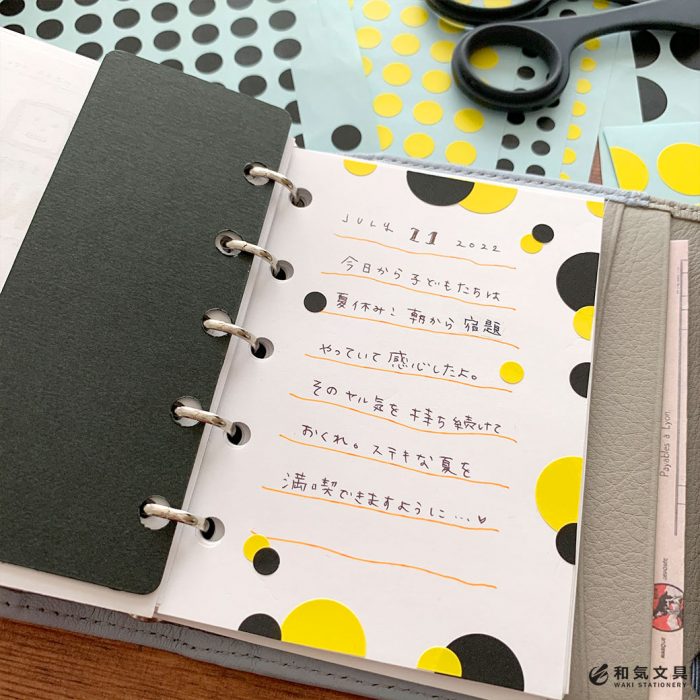 JULY 11 2022
今日から子どもたちは
夏休み！朝から宿題
やっていて感心したよ。
そのヤル気を持ち続けて
おくれ。ステキな夏を
満喫できますように…♥
Payables à Lyon.
和気文具
WAKI STATIONERY